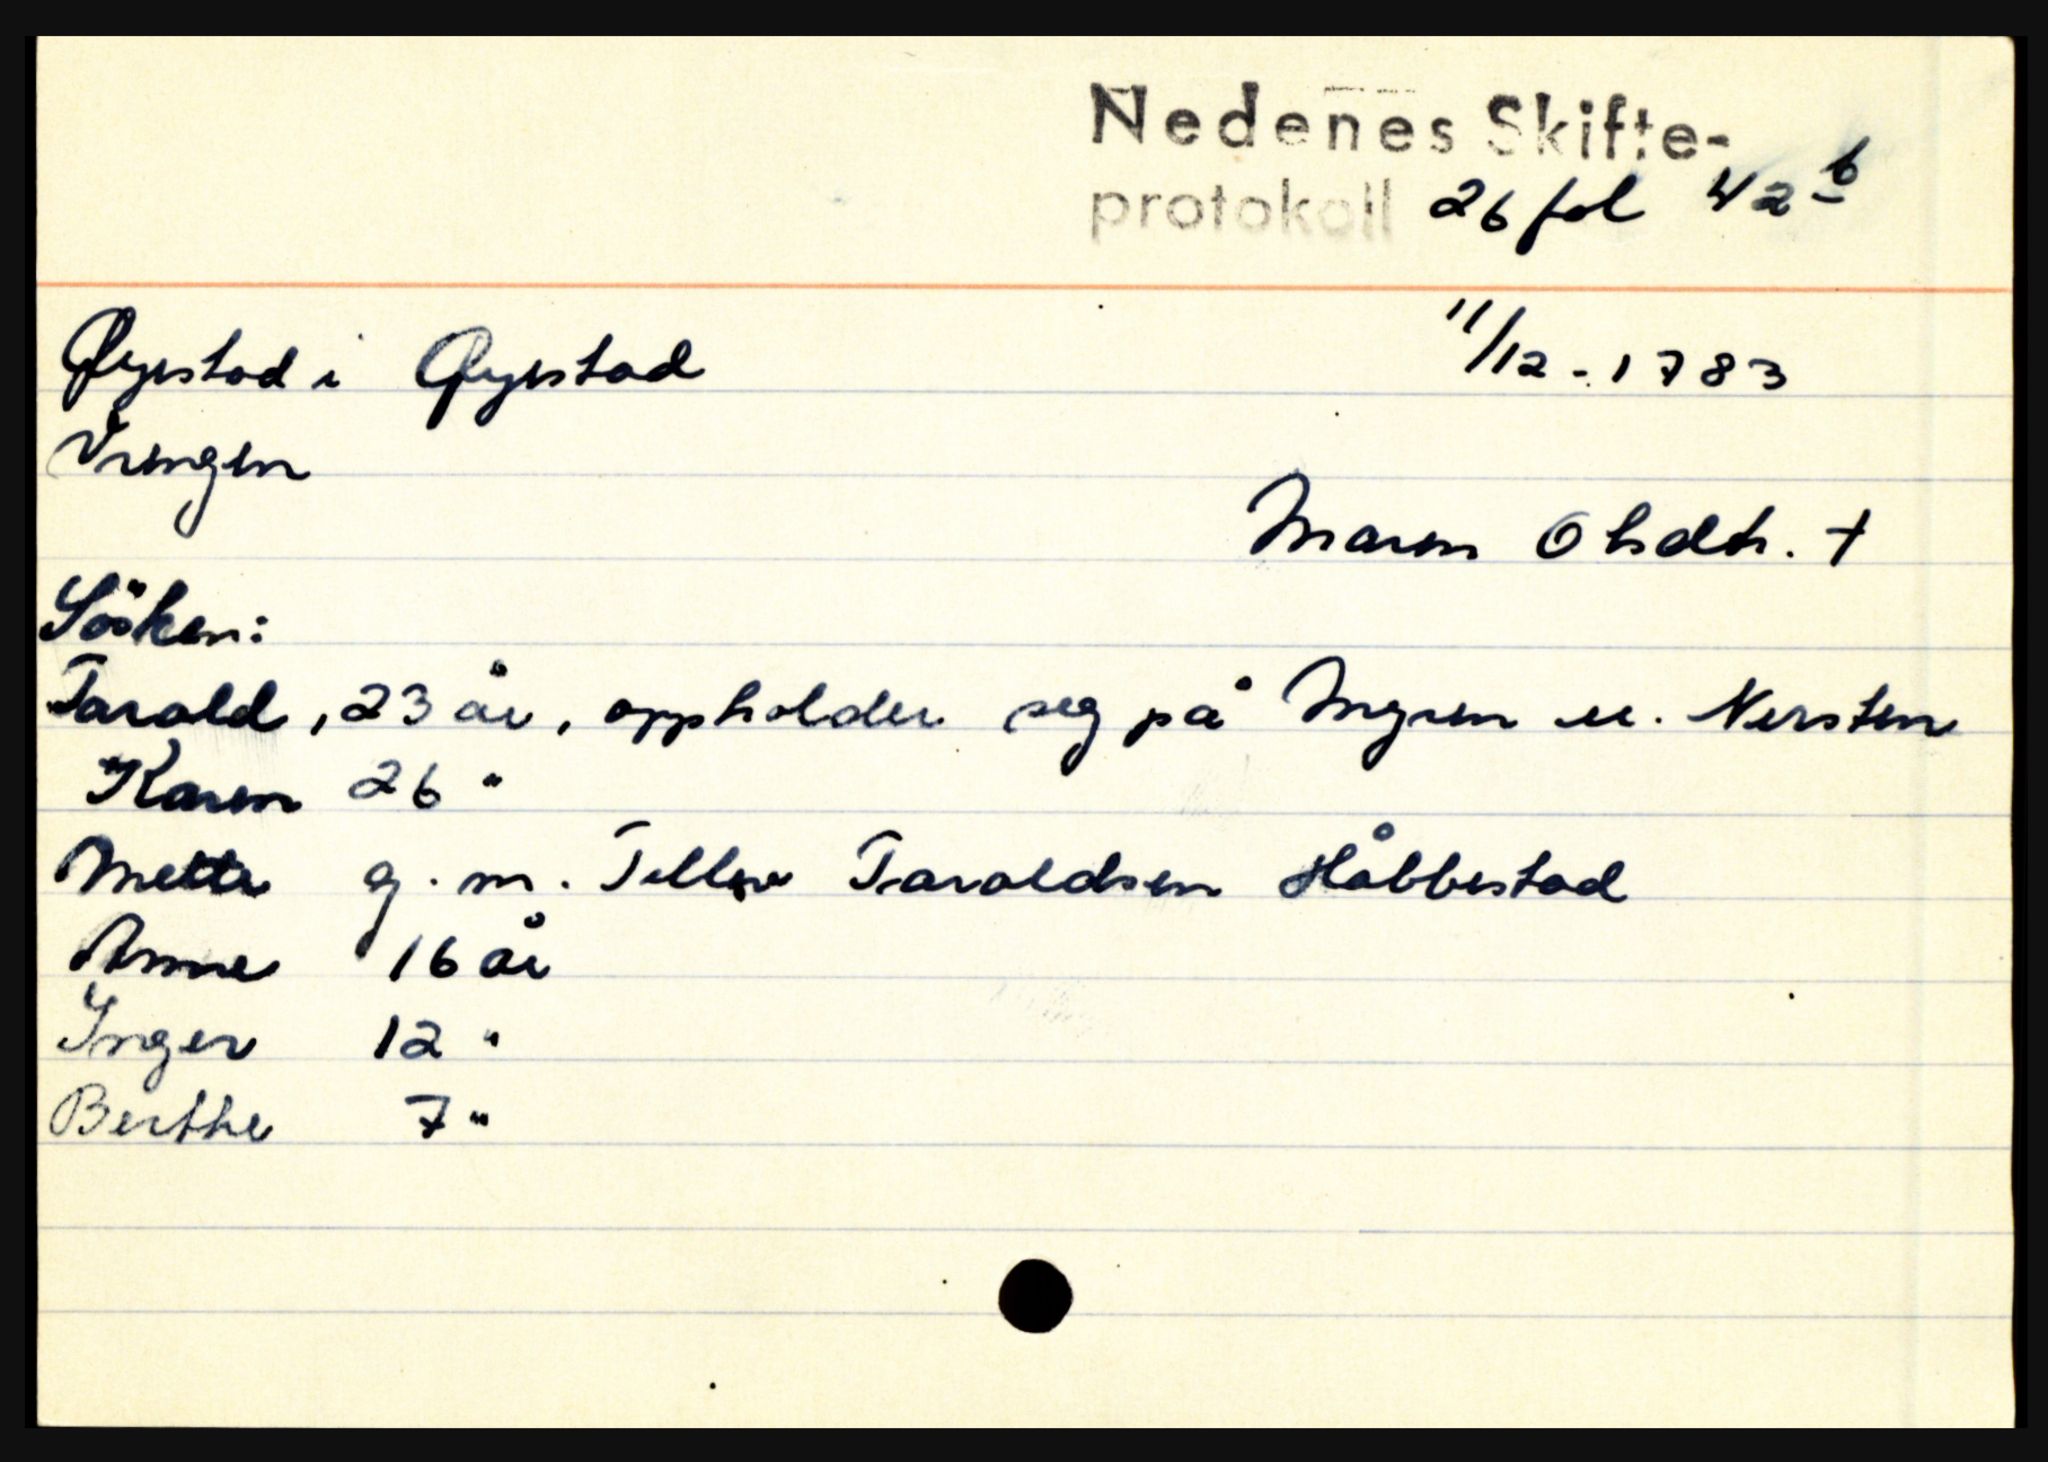 Nedenes Skifte-
protokoll 26 fol 42 b
Øyestad i Øyestad
11/12 - 1783
Vrengen
Maren Olsdtr. +
Søsken:
Tarald, 23 år, oppholder seg på Myren u. Nersten
Karen 26 "
Mette g. m. Tellev Taraldsen Håbbestad
Anne 16 år
Inger 12 "
Berthe 7 "